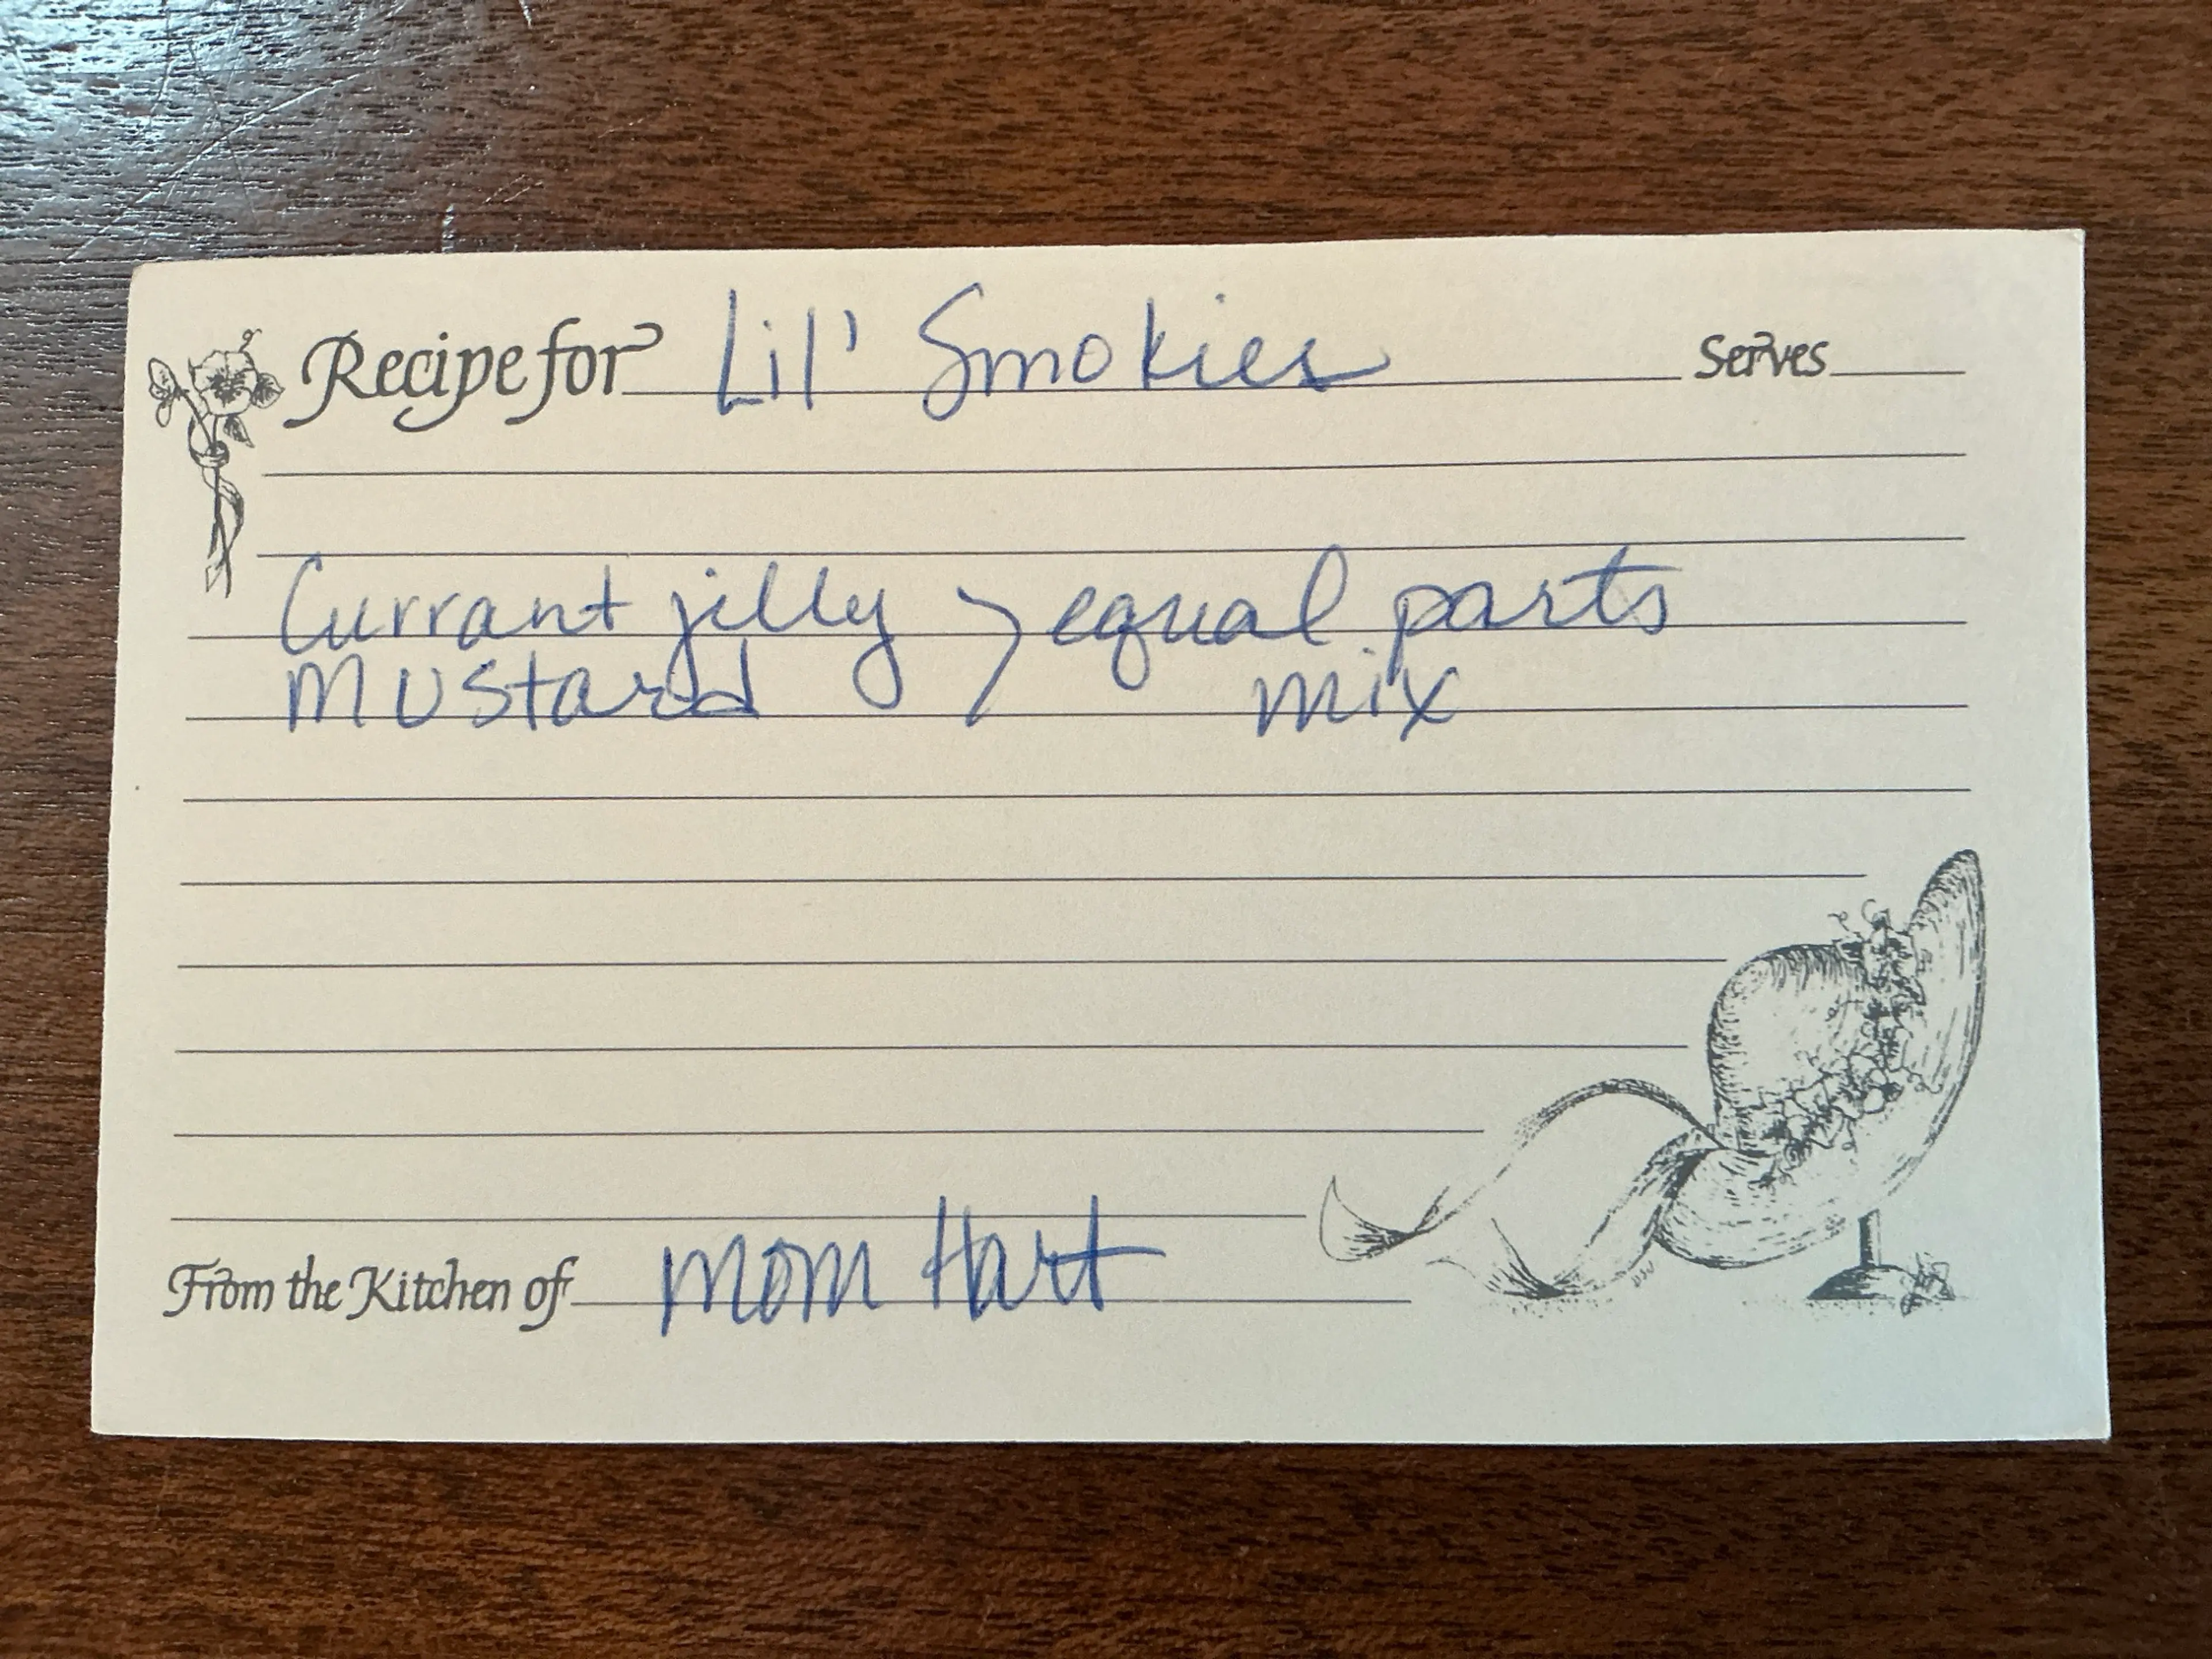 Recipe for Lil' Smokies Serves
Currant jelly > equal parts
Mustard mix
From the Kitchen of Mom Hart